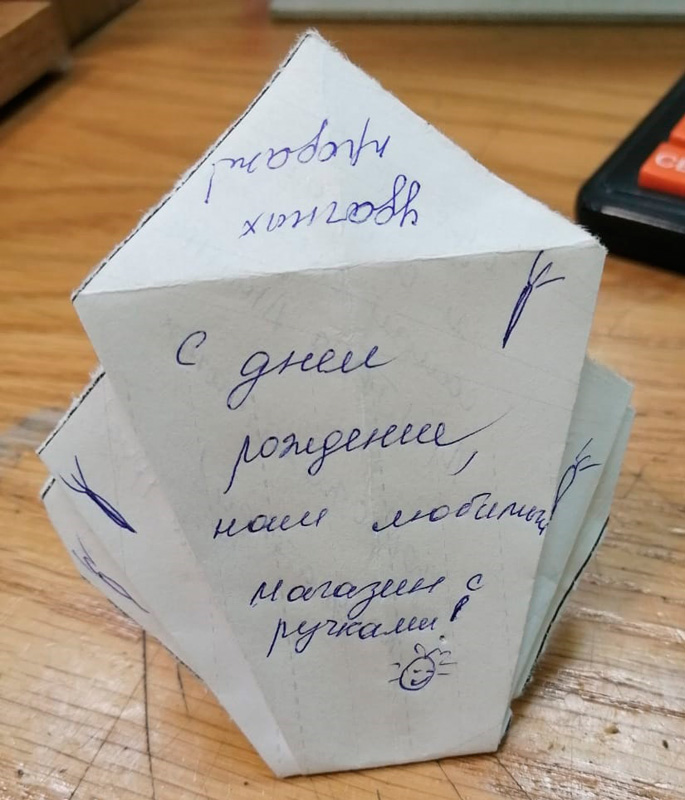 Удачных
продаж!
С днем
рождения,
наш любимый
магазин с
ручками!